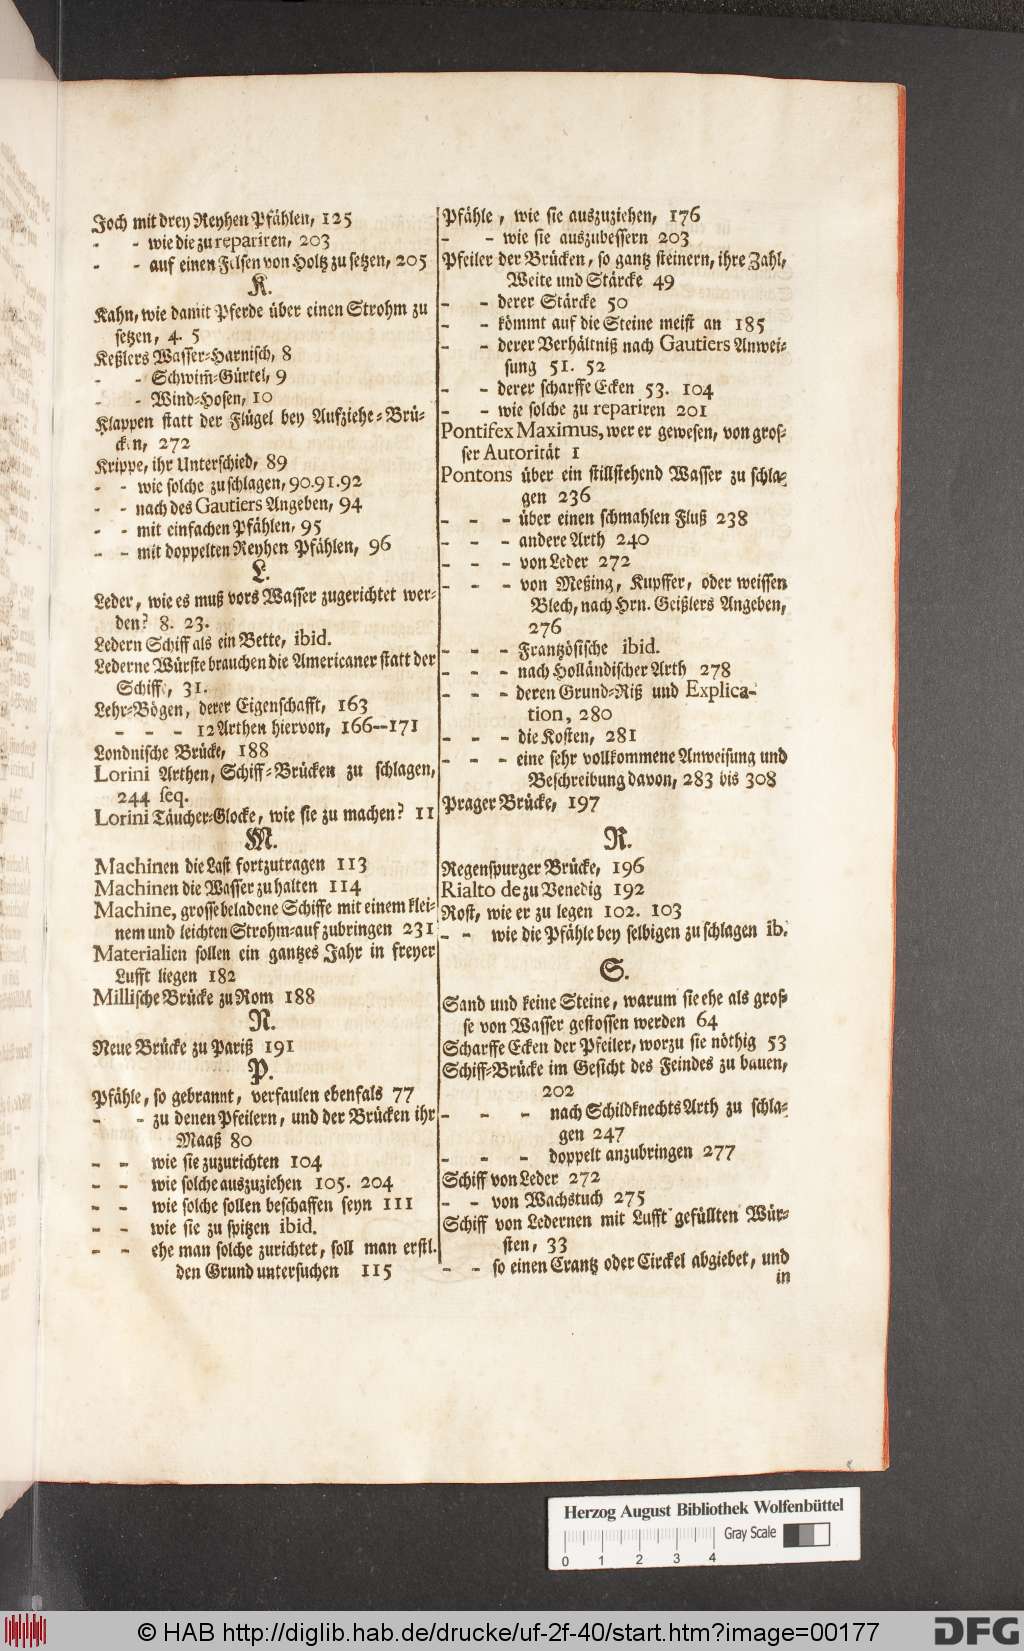 Joch mit drey Reyhen Pfählen, 125
- - wie die zu repariren, 203
- - auf einen Felsen von Holtz zu setzen, 205
K.
Kahn, wie damit Pferde über einen Strohm zu
setzen, 4. 5
Keßlers Wasser-Harnisch, 8
- - Schwim̃-Gürtel, 9
- - Wind-Hosen, 10
Klappen statt der Flügel bey Aufziehe-Brü-
cken, 272
Krippe, ihr Unterschied, 89
- - wie solche zu schlagen, 90. 91. 92
- - nach des Gautiers Angeben, 94
- - mit einfachen Pfählen, 95
- - mit doppelten Reyhen Pfählen, 96
L.
Leder, wie es muß vors Wasser zugerichtet wer-
den? 8. 23.
Ledern Schiff als ein Bette, ibid.
Lederne Würste brauchen die Americaner statt der
Schiffe, 31.
Lehr-Bögen, derer Eigenschafft, 163
- - - 12 Arthen hiervon, 166--171
Londnische Brücke, 188
Lorini Arthen, Schiff-Brücken zu schlagen,
244 seq.
Lorini Täucher-Glocke, wie sie zu machen? 11
M.
Machinen die Last fortzutragen 113
Machinen die Wasser zu halten 114
Machine, grosse beladene Schiffe mit einem klei-
nem und leichten Strohm-auf zubringen 231
Materialien sollen ein gantzes Jahr in freyer
Lufft liegen 182
Millische Brücke zu Rom 188
N.
Neue Brücke zu Pariß 191
P.
Pfähle, so gebrannt, verfaulen ebenfals 77
- - zu denen Pfeilern, und der Brücken ihr
Maaß 80
- - wie sie zuzurichten 104
- - wie solche auszuziehen 105. 204
- - wie solche sollen beschaffen seyn 111
- - wie sie zu spitzen ibid.
- - ehe man solche zurichtet, soll man erstl.
den Grund untersuchen 115
Pfähle, wie sie auszuziehen, 176
- - wie sie auszubessern 203
Pfeiler der Brücken, so gantz steinern, ihre Zahl,
Weite und Stärcke 49
- - derer Stärcke 50
- - kömmt auf die Steine meist an 185
- - derer Verhältniß nach Gautiers Anwei-
sung 51. 52
- - derer scharffe Ecken 53. 104
- - wie solche zu repariren 201
Pontifex Maximus, wer er gewesen, von gros-
ser Autorität 1
Pontons über ein stillstehend Wasser zu schla-
gen 236
- - - über einen schmahlen Fluß 238
- - - andere Arth 240
- - - von Leder 272
- - - von Meßing, Kupffer, oder weissen
Blech, nach Hrn. Geißlers Angeben,
276
- - - Frantzösische ibid.
- - - nach Holländischer Arth 278
- - - deren Grund-Riß und Explica-
tion, 280
- - - die Kosten, 281
- - - eine sehr vollkommene Anweisung und
Beschreibung davon, 283 bis 308
Prager Brücke, 197
R.
Regenspurger Brücke, 196
Rialto de zu Venedig 192
Rost, wie er zu legen 102. 103
- - wie die Pfähle bey selbigen zu schlagen ib.
S.
Sand und keine Steine, warum sie ehe als gros-
se von Wasser gestossen werden 64
Scharffe Ecken der Pfeiler, worzu sie nöthig 53
Schiff-Brücke im Gesicht des Feindes zu bauen,
202
- - - nach Schildknechts Arth zu schla-
gen 247
- - - doppelt anzubringen 277
Schiff von Leder 272
- - von Wachstuch 275
Schiff von Ledernen mit Lufft gefüllten Wür-
sten, 33
- - so einen Crantz oder Circkel abgiebet, und
in
Herzog August Bibliothek Wolfenbüttel
Gray Scale
0 1 2 3 4
© HAB http://diglib.hab.de/drucke/uf-2f-40/start.htm?image=00177
DFG